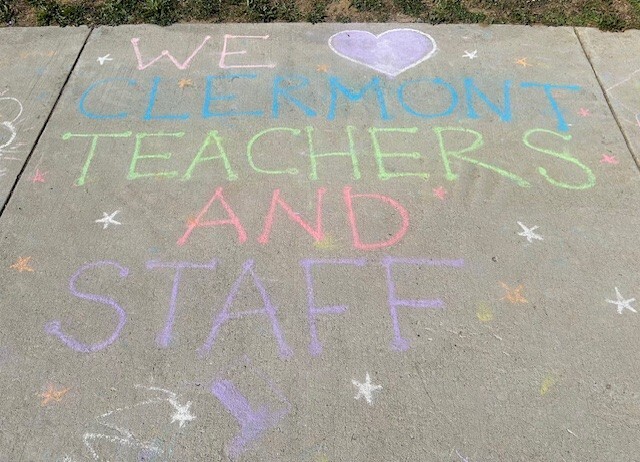 WE
CLERMONT
TEACHERS
AND
STAFF